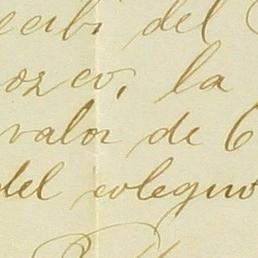 ecibi del
ozco, la
valor de 6
del colegio